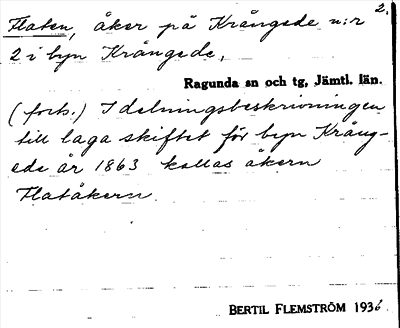 2.
Flaten, åker på Krångede n:r
2 i byn Krångede,
Ragunda sn och tg, Jämtl. län.
(forts.) I delningsbeskrivningen
till laga skiftet för byn Krång-
ede år 1863 kallas åkern
Flatåkern.
BERTIL FLEMSTRÖM 1936.